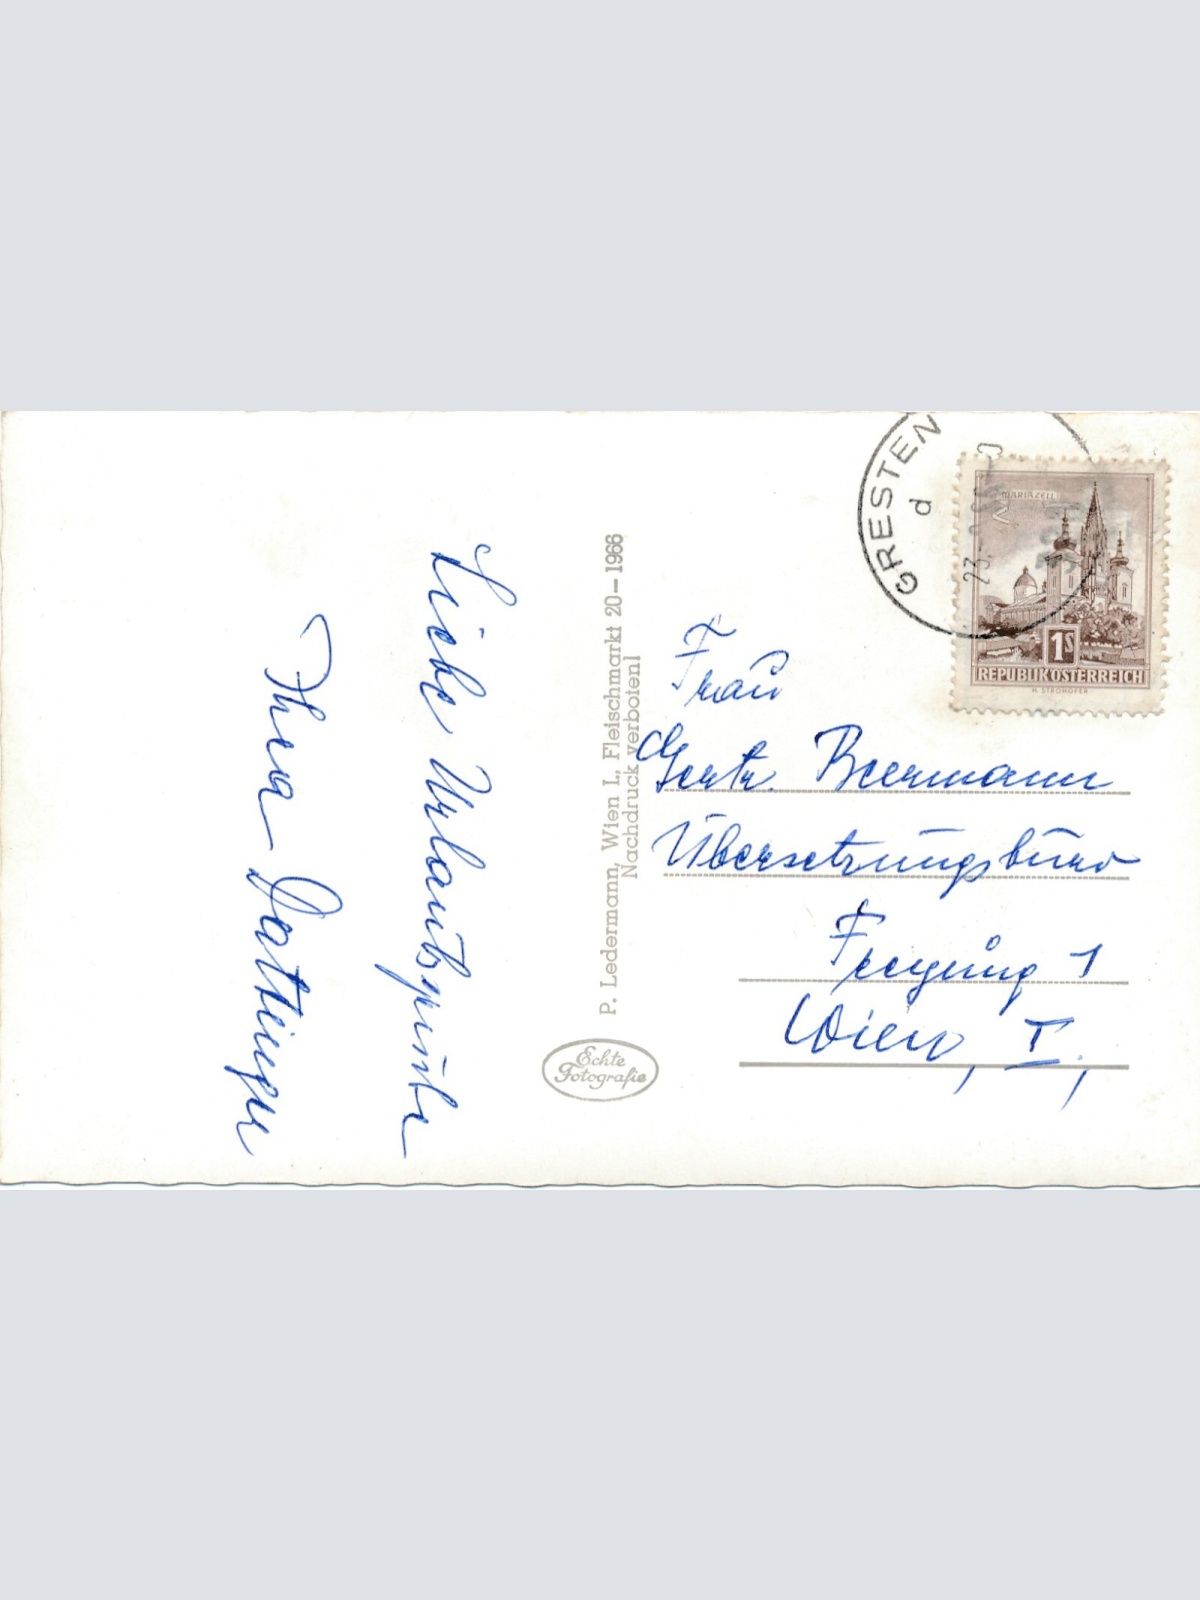 Liebe Urlaubsgrüße
Ihre
GRESTEN
d
23.
MARIAZELL
1S
REPUBLIK ÖSTERREICH
H. STROHOFER
P. Ledermann, Wien I., Fleischmarkt 20-1966
Nachdruck verboten!
Echte
Fotografie
Frau
Gertr. Beermann
Übersetzungsbüro
Freyung 1
Wien, I.,